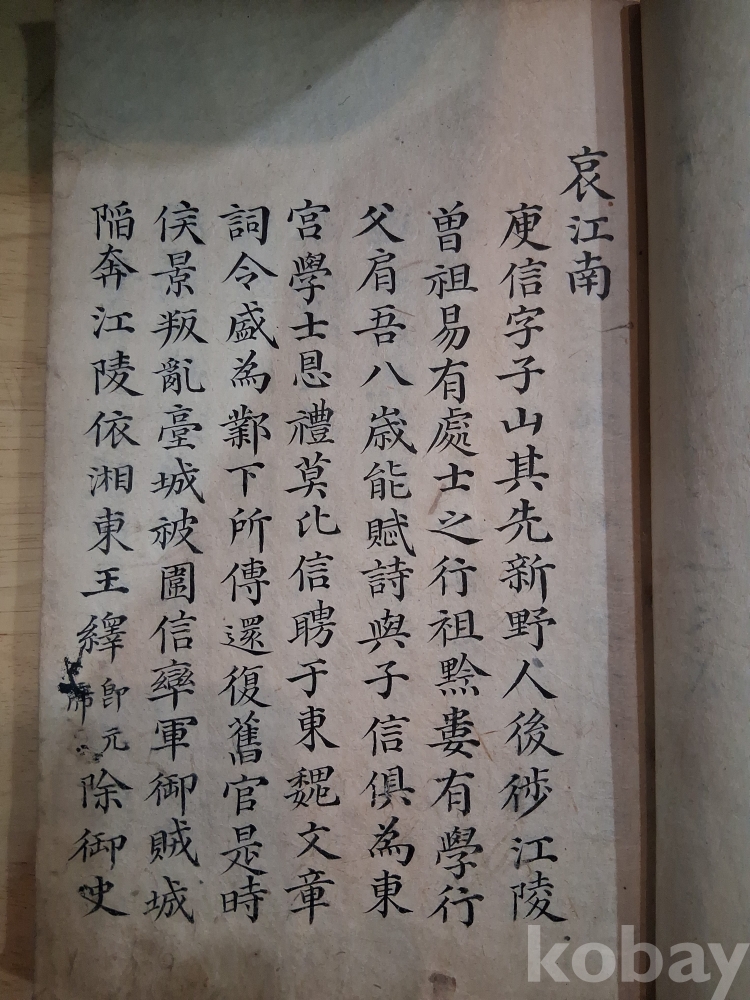 哀江南
庾信字子山其先新野人後徙江陵
曽祖易有處士之行祖黔婁有學行
父肩吾八歲能賦詩與子信俱為東
宮學士恩禮莫比信聘于東魏文章
詞令盛為鄴下所傳還復舊官是時
侯景叛亂臺城被圍信率軍御賊城
陷奔江陵依湘東王繹即元帝除御史
kobay